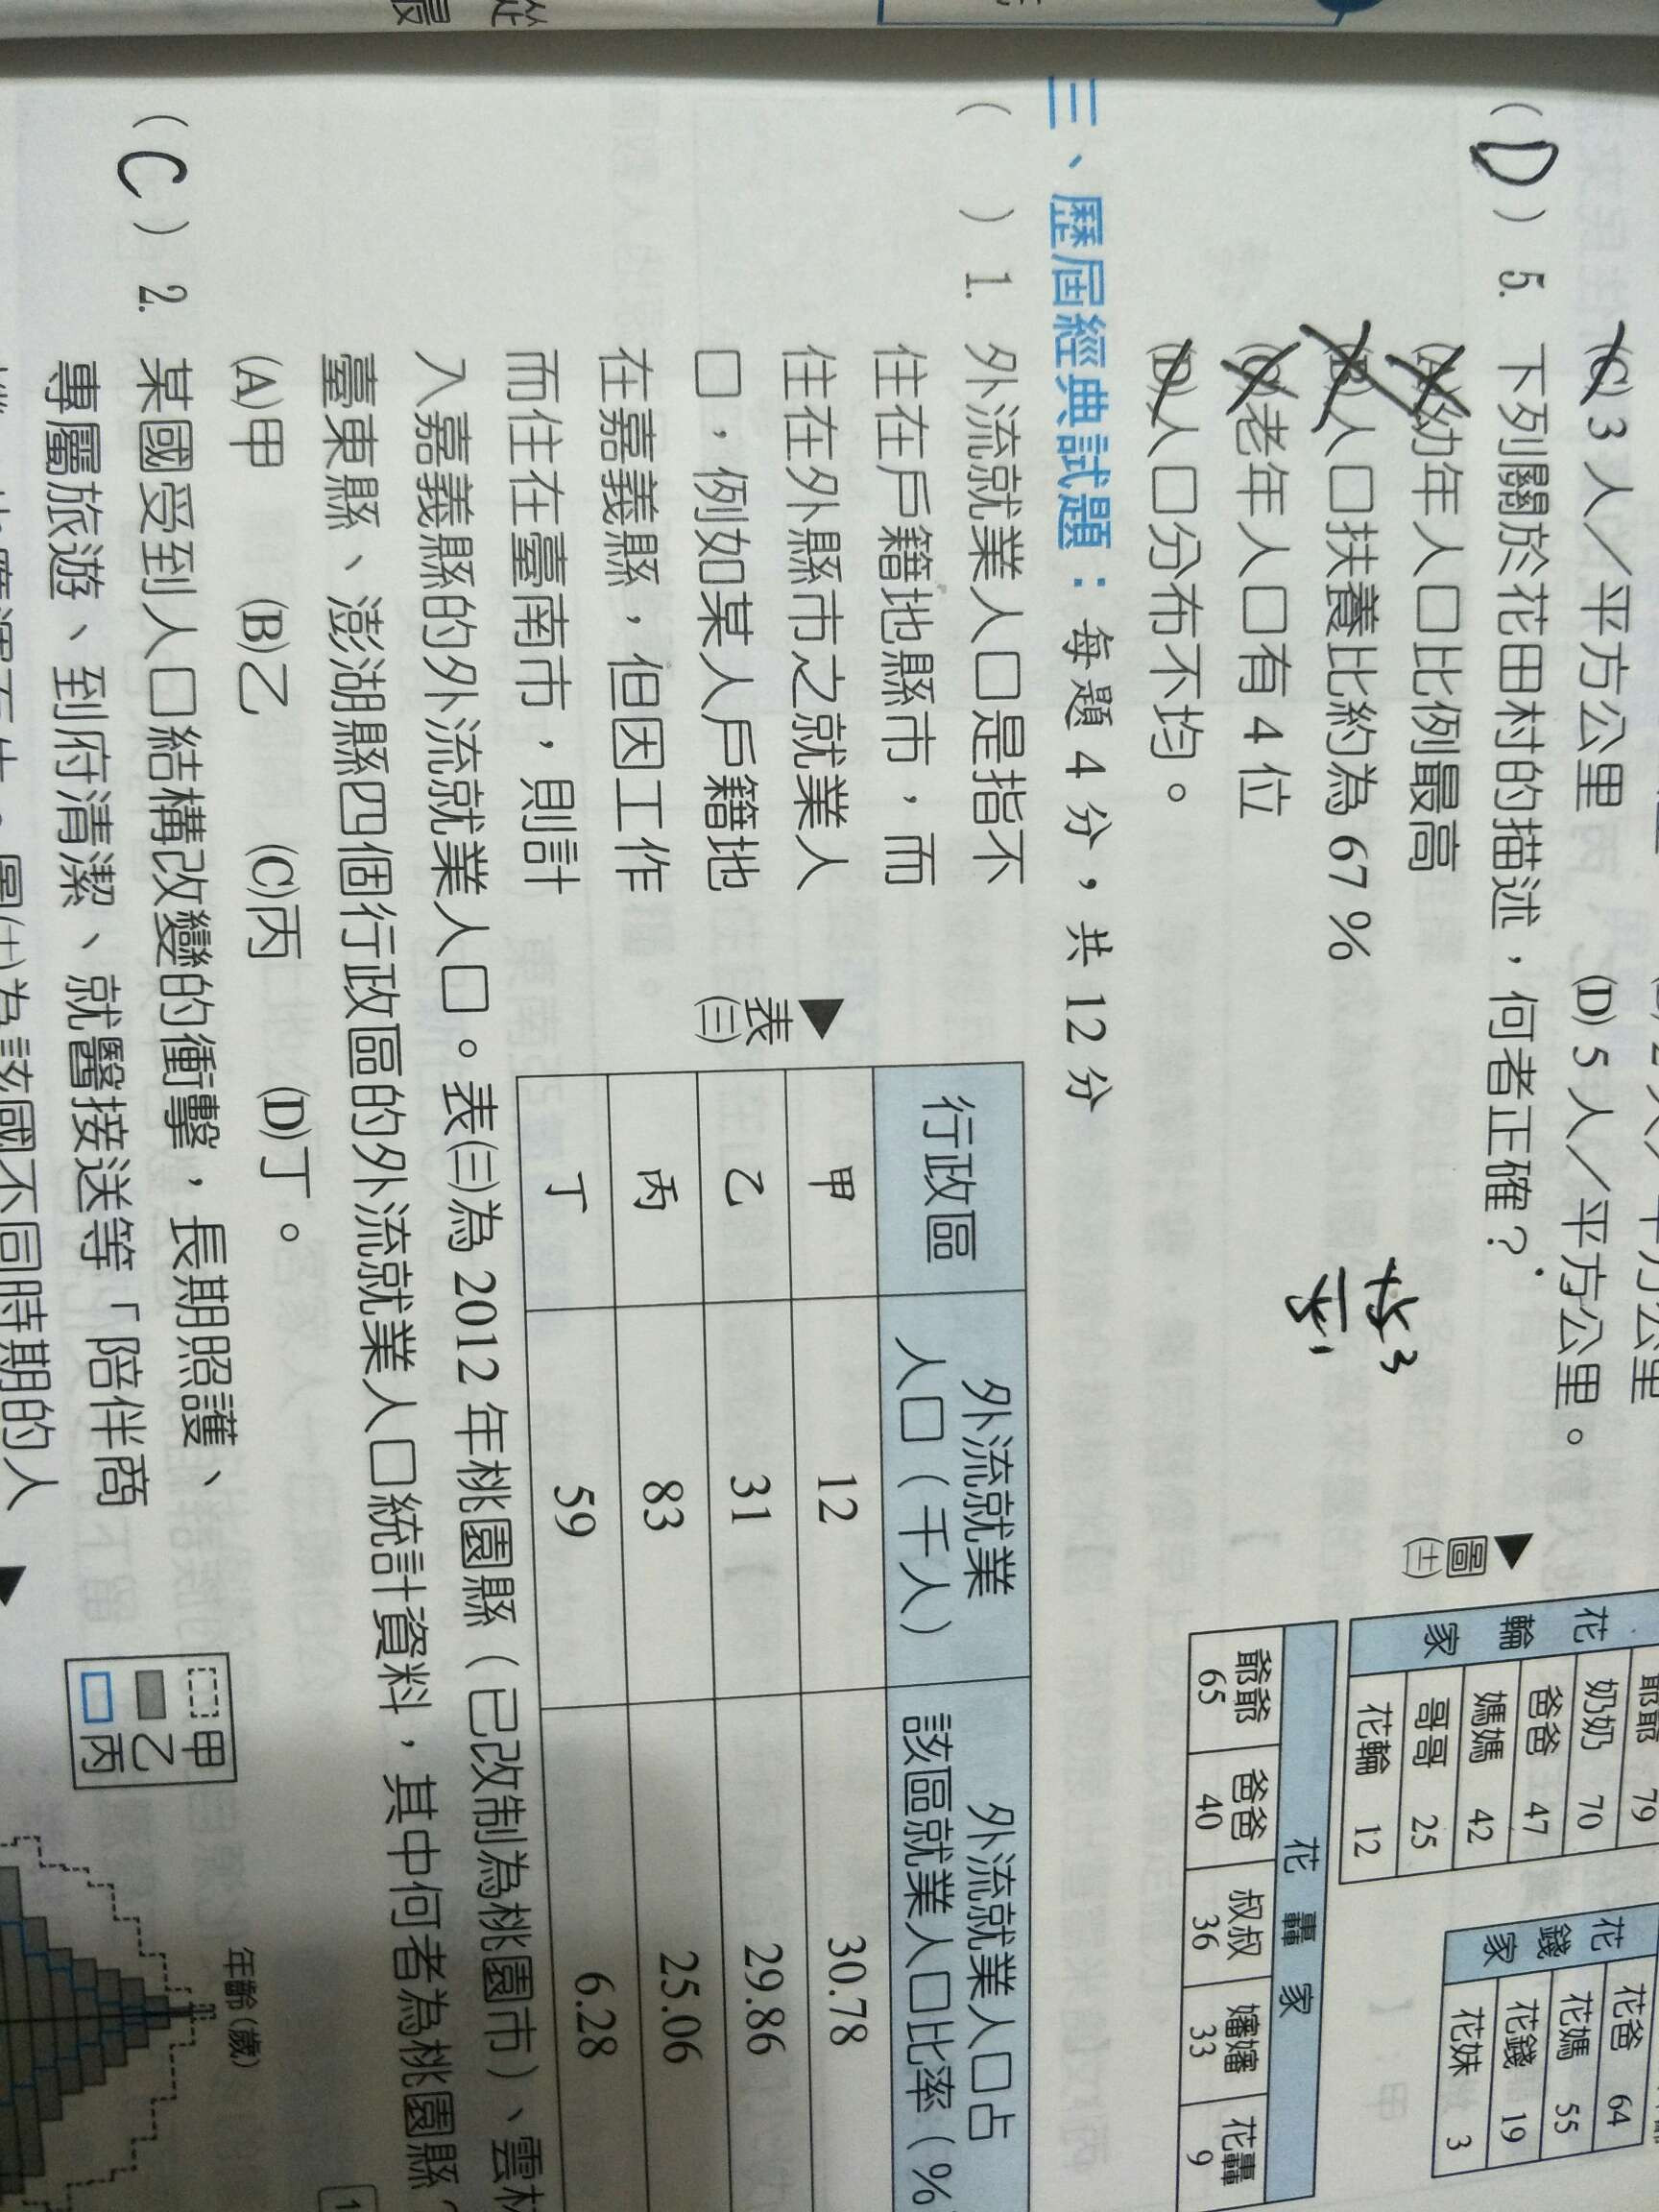 (C) 3 人／平方公里
(D) 5 人／平方公里。
( D ) 5. 下列關於花田村的描述，何者正確？
(A)幼年人口比例最高
(B)人口扶養比約為 67 %
(C)老年人口有 4 位
(D)人口分布不均。
圖(十)
花輪家
爺爺 79
奶奶 70
爸爸 47
媽媽 42
哥哥 25
花輪 12
花錢家
花爸 64
花媽 55
花錢 19
花妹 3
花轟家
爺爺 65
爸爸 40
叔叔 36
嬸嬸 33
花轟 9
三、歷屆經典試題：每題 4 分，共 12 分
( ) 1. 外流就業人口是指不
住在戶籍地縣市，而
住在外縣市之就業人
口，例如某人戶籍地
在嘉義縣，但因工作
而住在臺南市，則計
入嘉義縣的外流就業人口。表(三)為 2012 年桃園縣（已改制為桃園市）、雲林
臺東縣、澎湖縣四個行政區的外流就業人口統計資料，其中何者為桃園縣？
(A)甲 (B)乙 (C)丙 (D)丁。
表(三)
行政區 外流就業人口（千人） 外流就業人口占該區就業人口比率（%
甲 12 30.78
乙 31 29.86
丙 83 25.06
丁 59 6.28
( C ) 2. 某國受到人口結構改變的衝擊，長期照護、
專屬旅遊、到府清潔、就醫接送等「陪伴商
為該國不同時期的人
甲
乙
丙
年齡(歲)